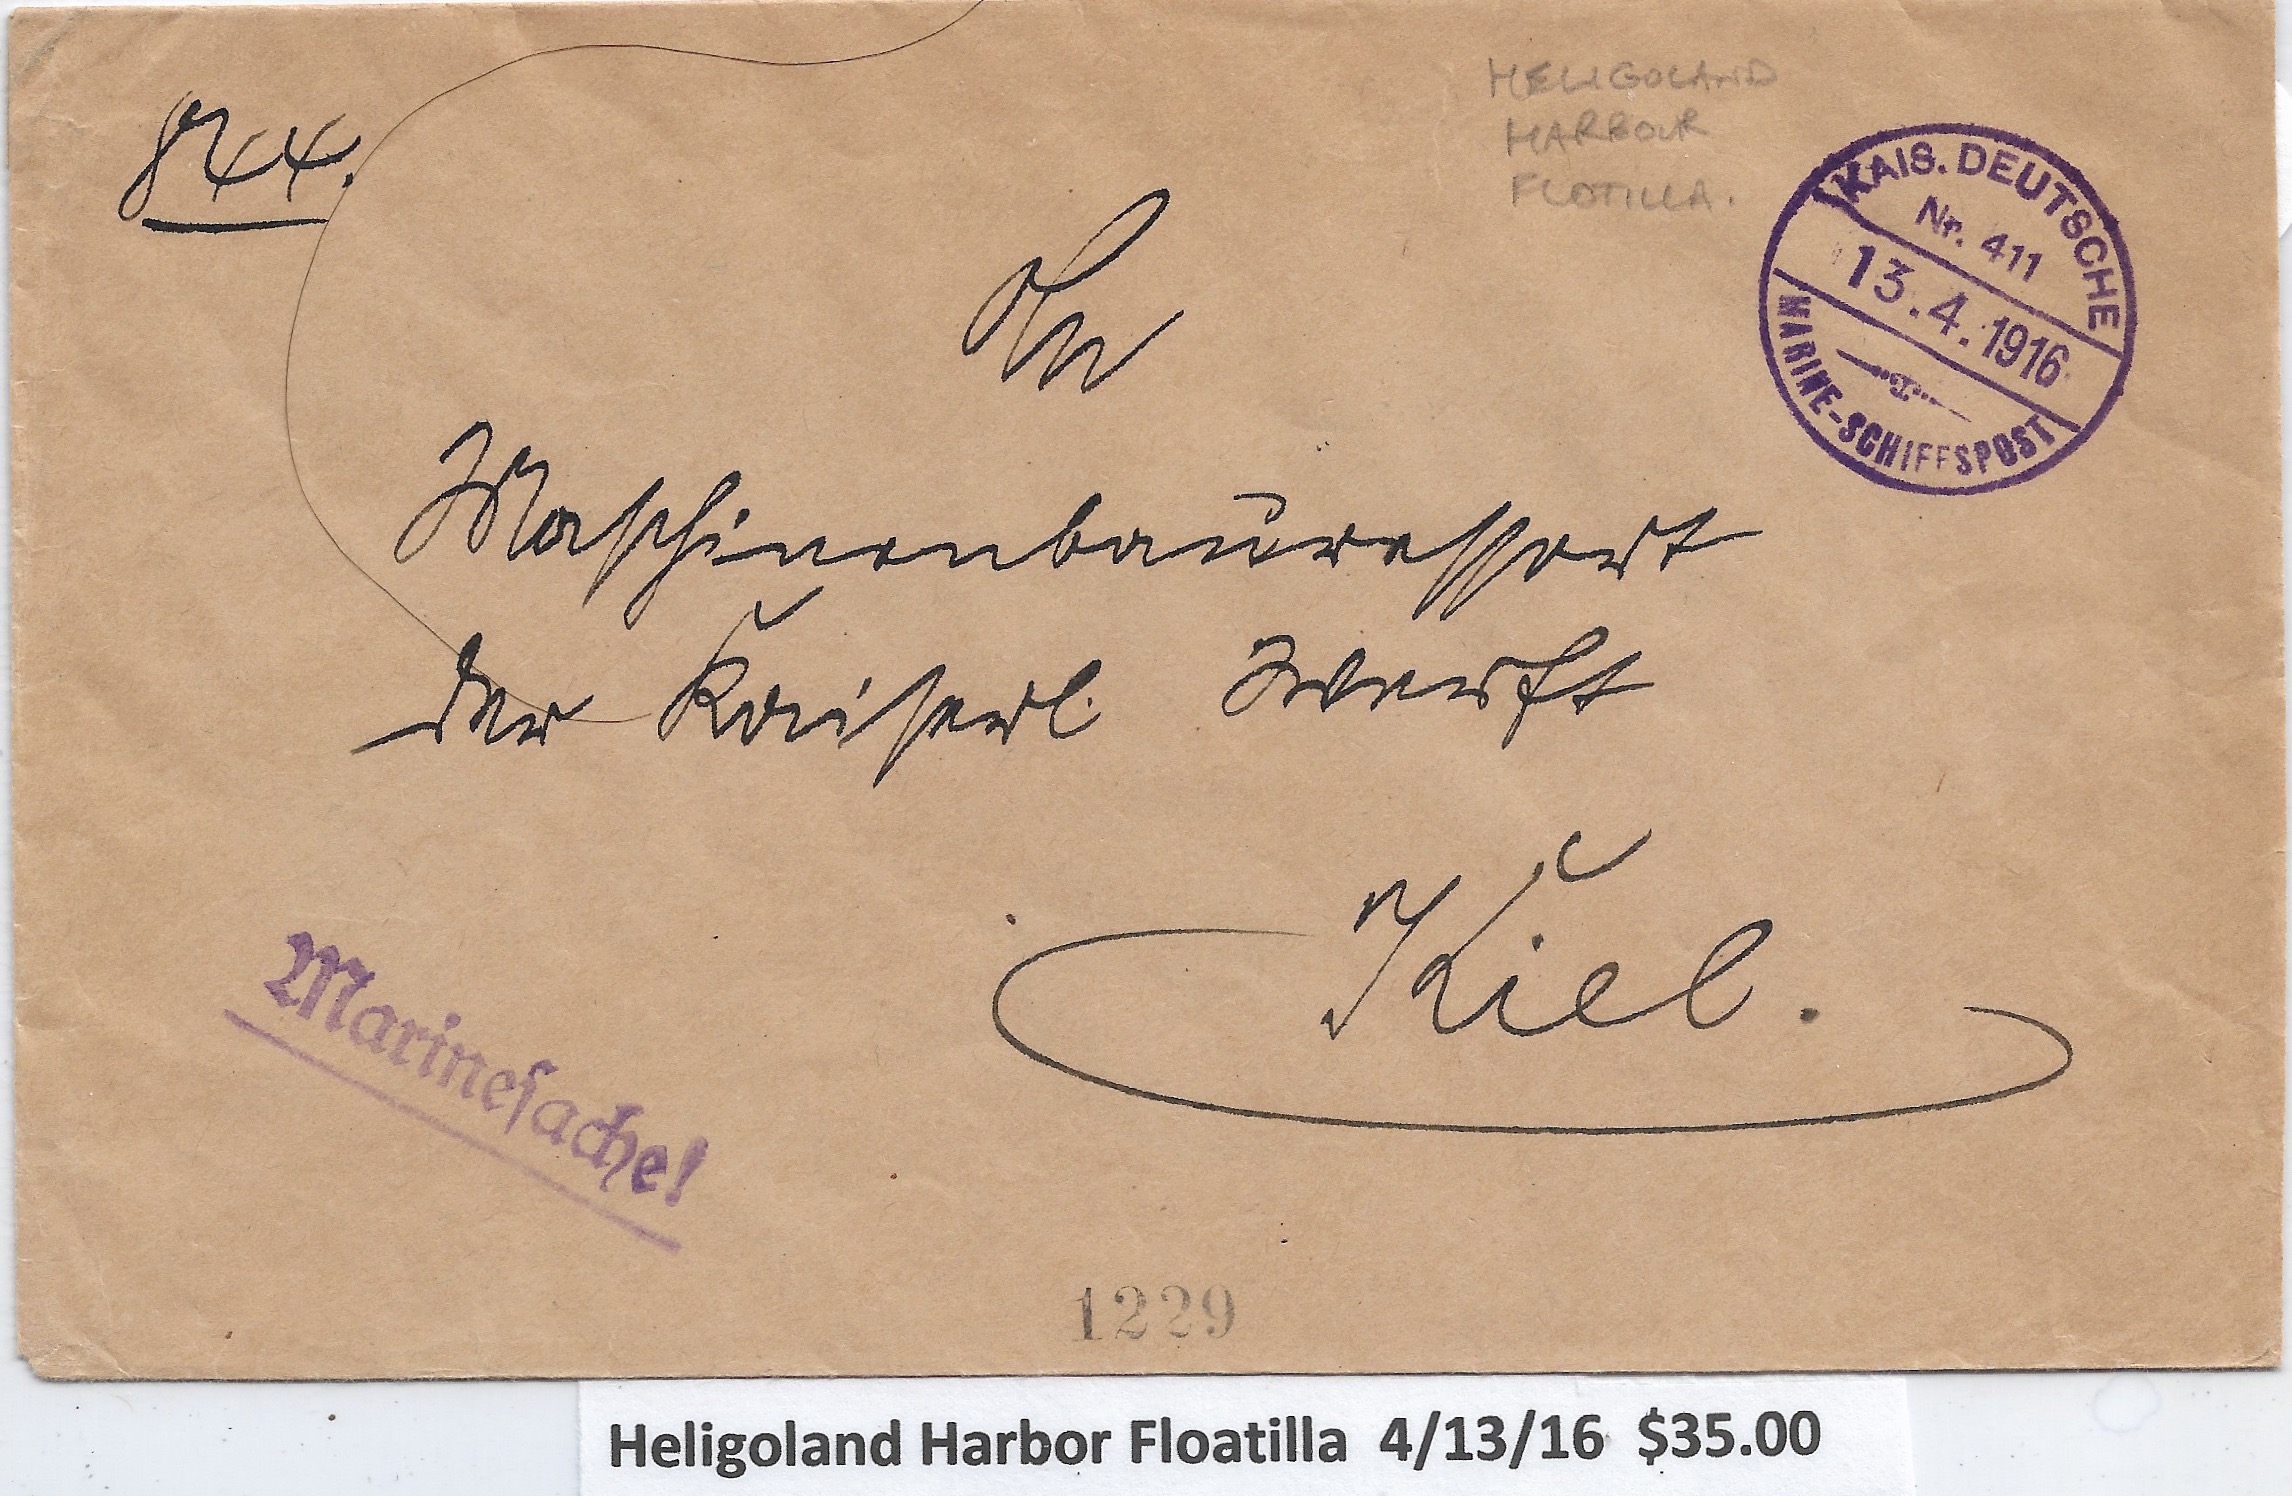 844.
HELIGOLAND
HARBOUR
FLOTILLA.
KAIS. DEUTSCHE
Nr. 411
13.4.1916
MARINE-SCHIFFSPOST
An
Maschinenbauressort
der Kaiserl. Werft
Kiel.
Marinesache!
1229
Heligoland Harbor Floatilla 4/13/16 $35.00